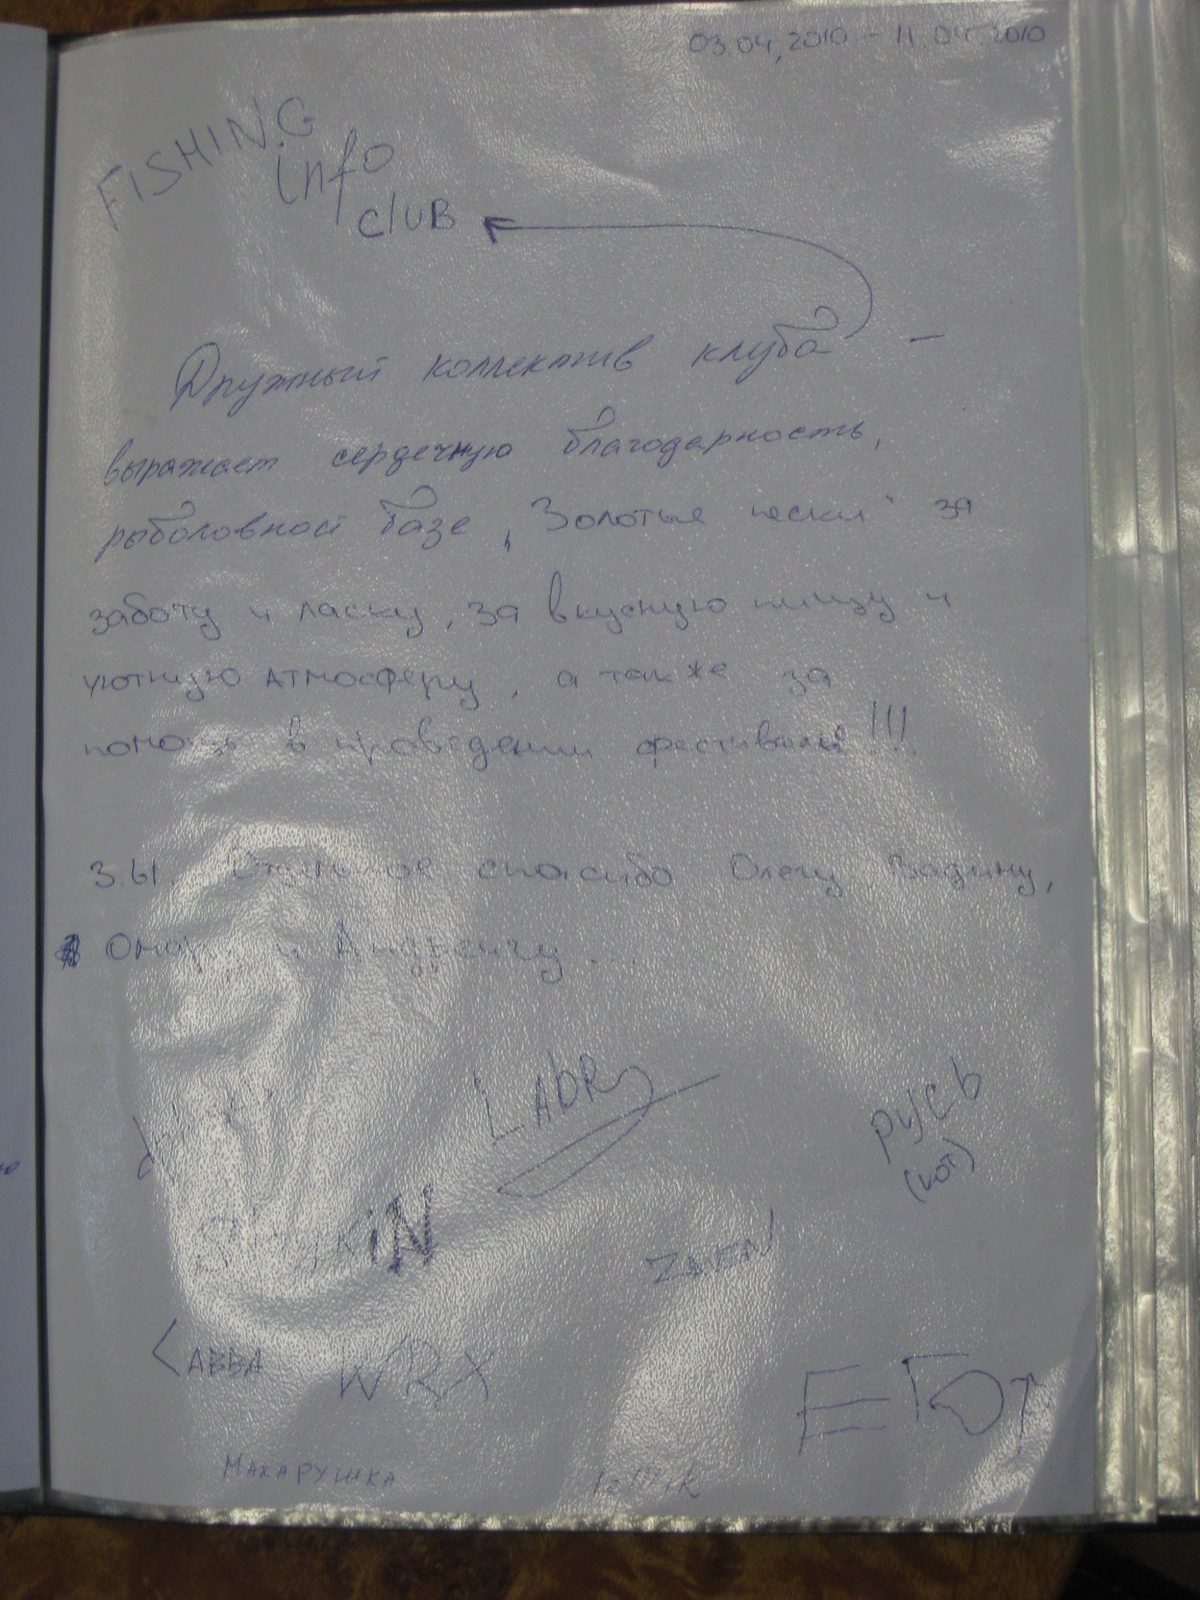 03.04.2010 - 11.04.2010
FISHING
info
cluB
Дружный коллектив клуба -
выражает сердечную благодарность,
рыболовной базе „Золотые пески" за
заботу и ласку, за вкусную пищу и
уютную атмосферу, а также за
помощь в проведении фестиваля!!!
З.Ы. Отдельное спасибо Олегу, Вадиму,
Омару и Андреичу...
LABR
РУСЬ
(кот)
САВВА
WRX
МАКАРУШКА